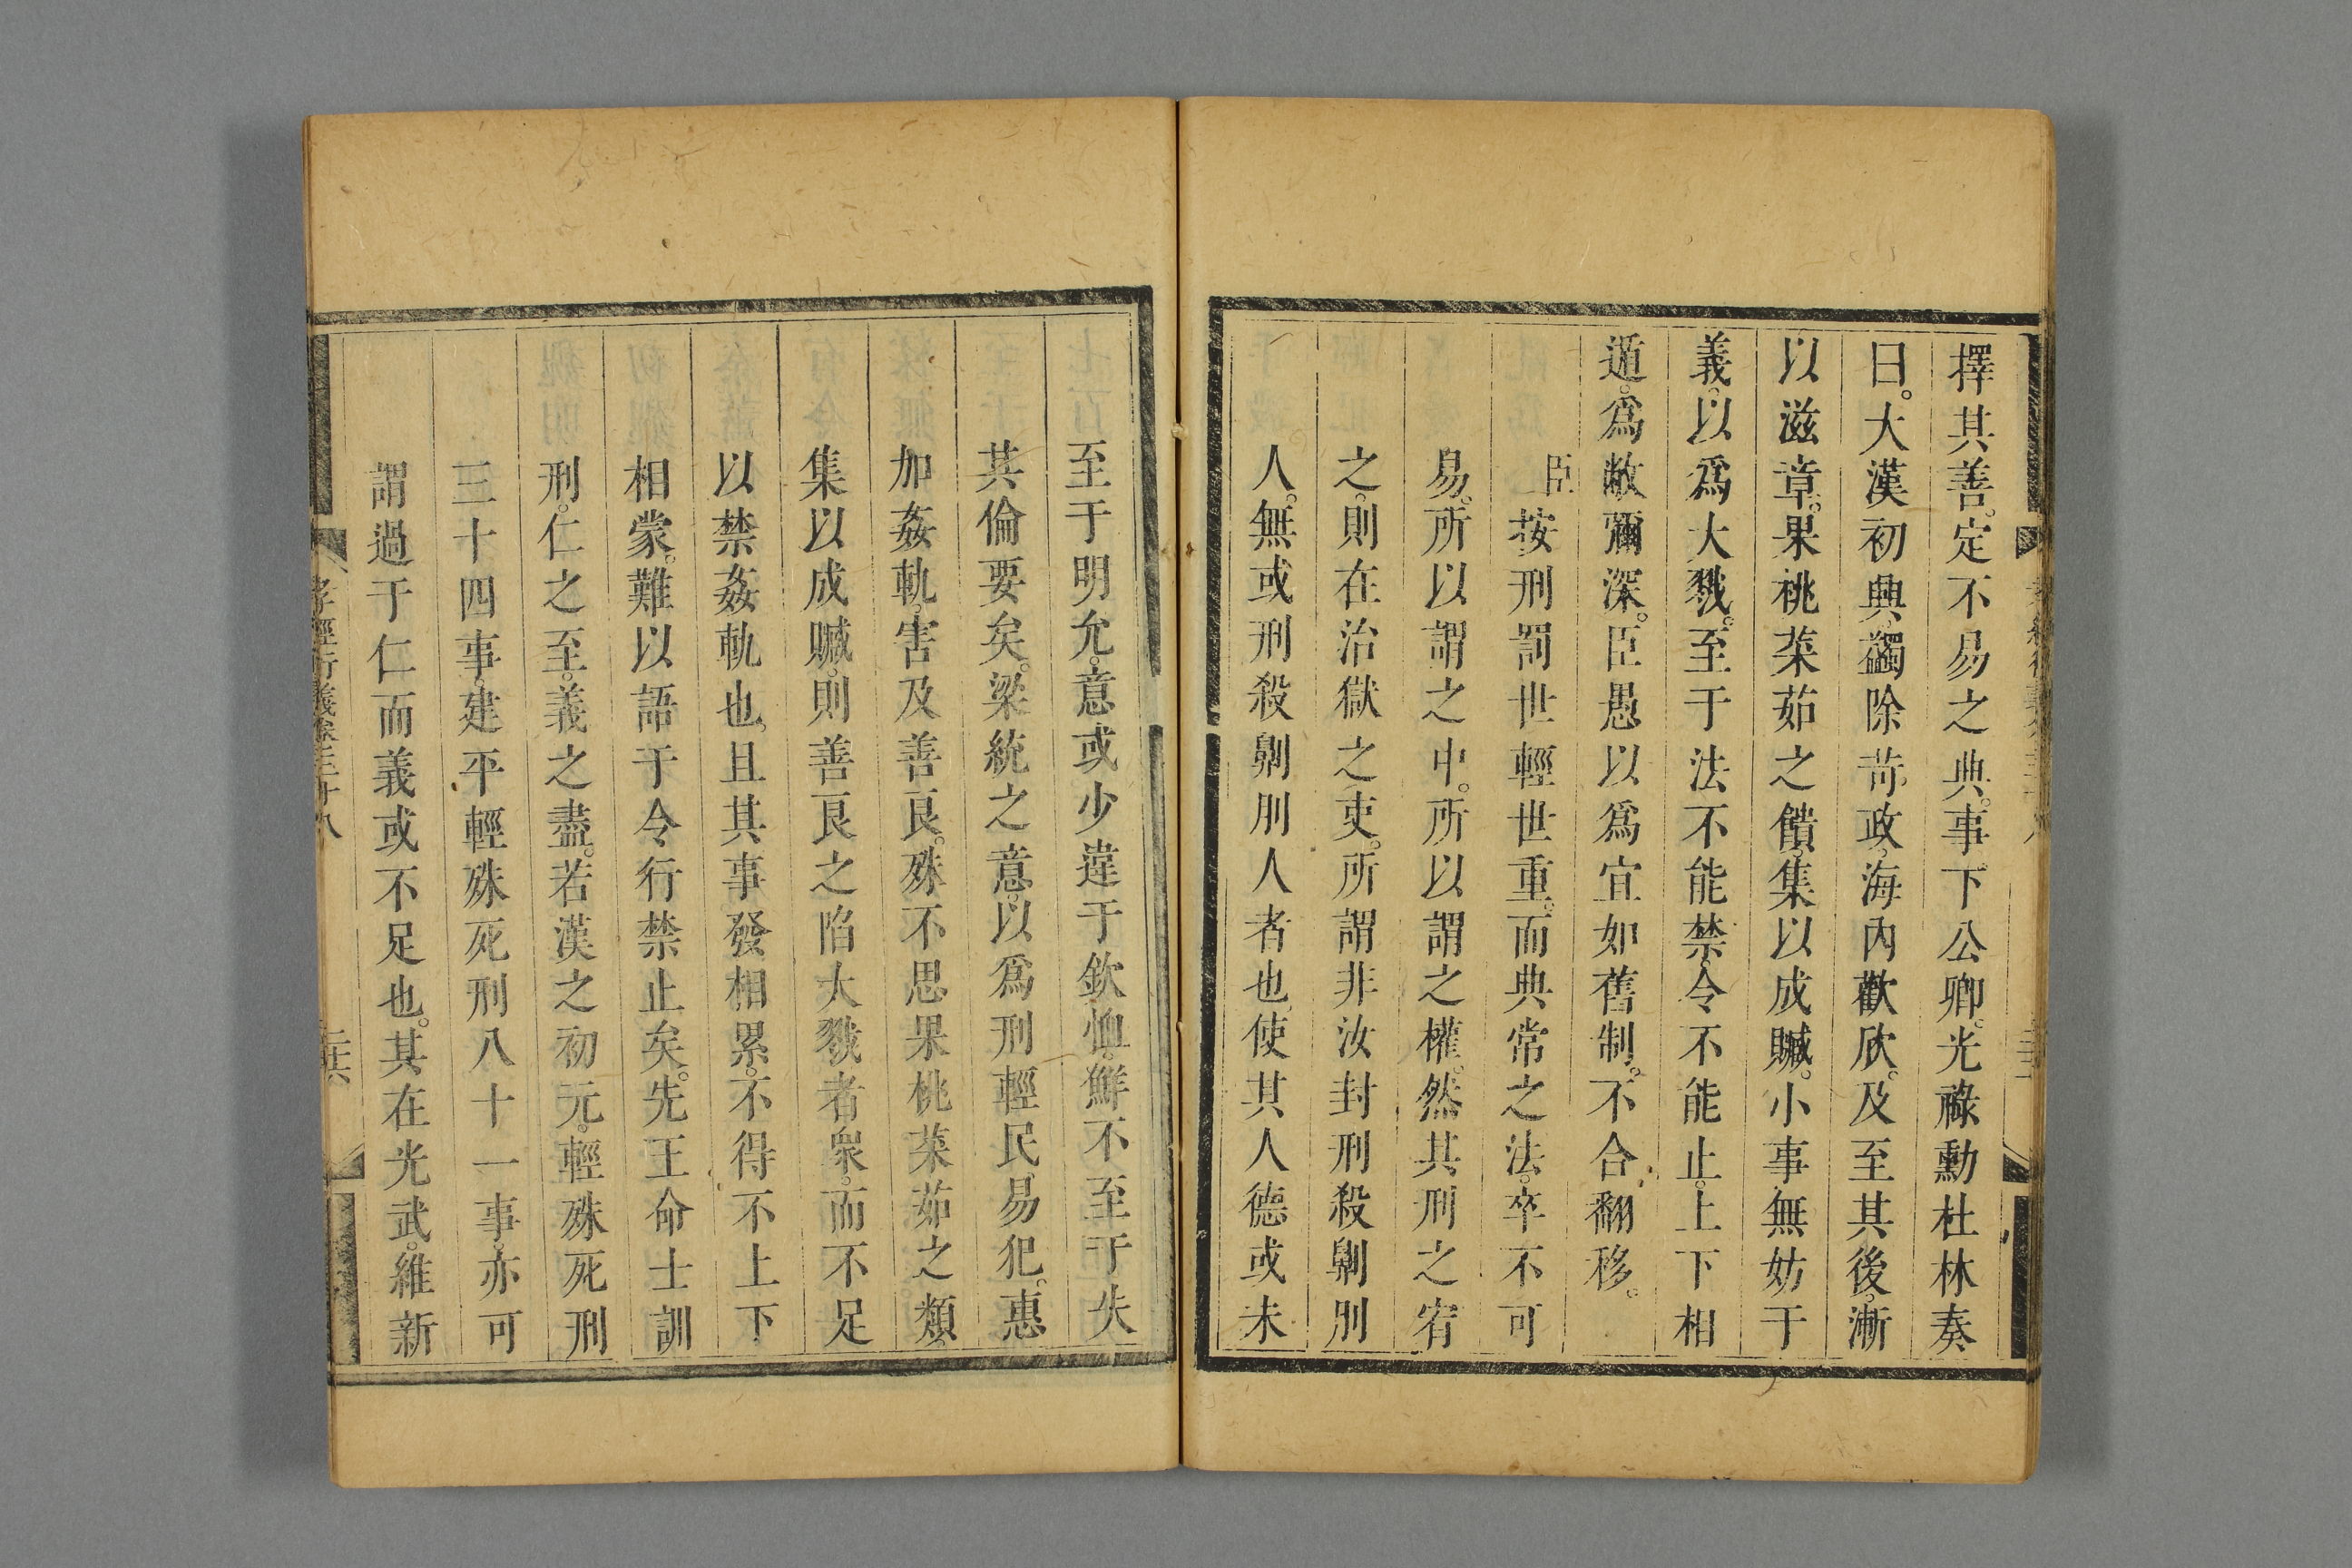 擇其善。定不易之典。事下公卿。光祿勳杜林奏
曰。大漢初興。蠲除苛政。海內歡欣。及至其後。漸
以滋章。果桃菜茹之饋。集以成贓。小事無妨于
義。以爲大戮。至于法不能禁。令不能止。上下相
遁。爲敝彌深。臣愚以爲宜如舊制。不合翻移。
臣按刑罰世輕世重。而典常之法。卒不可
易。所以謂之中。所以謂之權。然其刑之宥
之。則在治獄之吏。所謂非汝封刑殺劓刖
人。無或刑殺劓刖人者也。使其人德或未
至于明允。意或少違于欽恤。鮮不至于失
其倫要矣。梁統之意。以爲刑輕民易犯。惠
加姦軌。害及善良。殊不思果桃菜茹之類。
集以成贓。則善良之陷大戮者衆。而不足
以禁姦軌也。且其事發相累。不得不上下
相蒙。難以語于令行禁止矣。先王命士訓
刑。仁之至。義之盡。若漢之初元。輕殊死刑
三十四事。建平輕殊死刑八十一事。亦可
謂過于仁而義或不足也。其在光武。維新
孝經衍義卷三十八